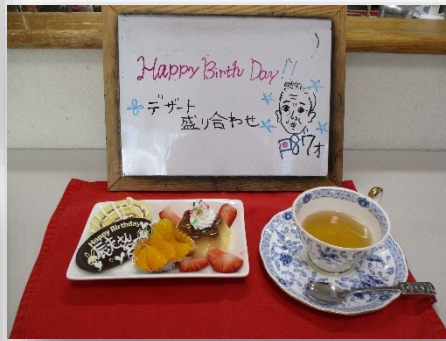 Happy Birth Day!!
デザート
盛り合わせ
87才
Happy Birthday